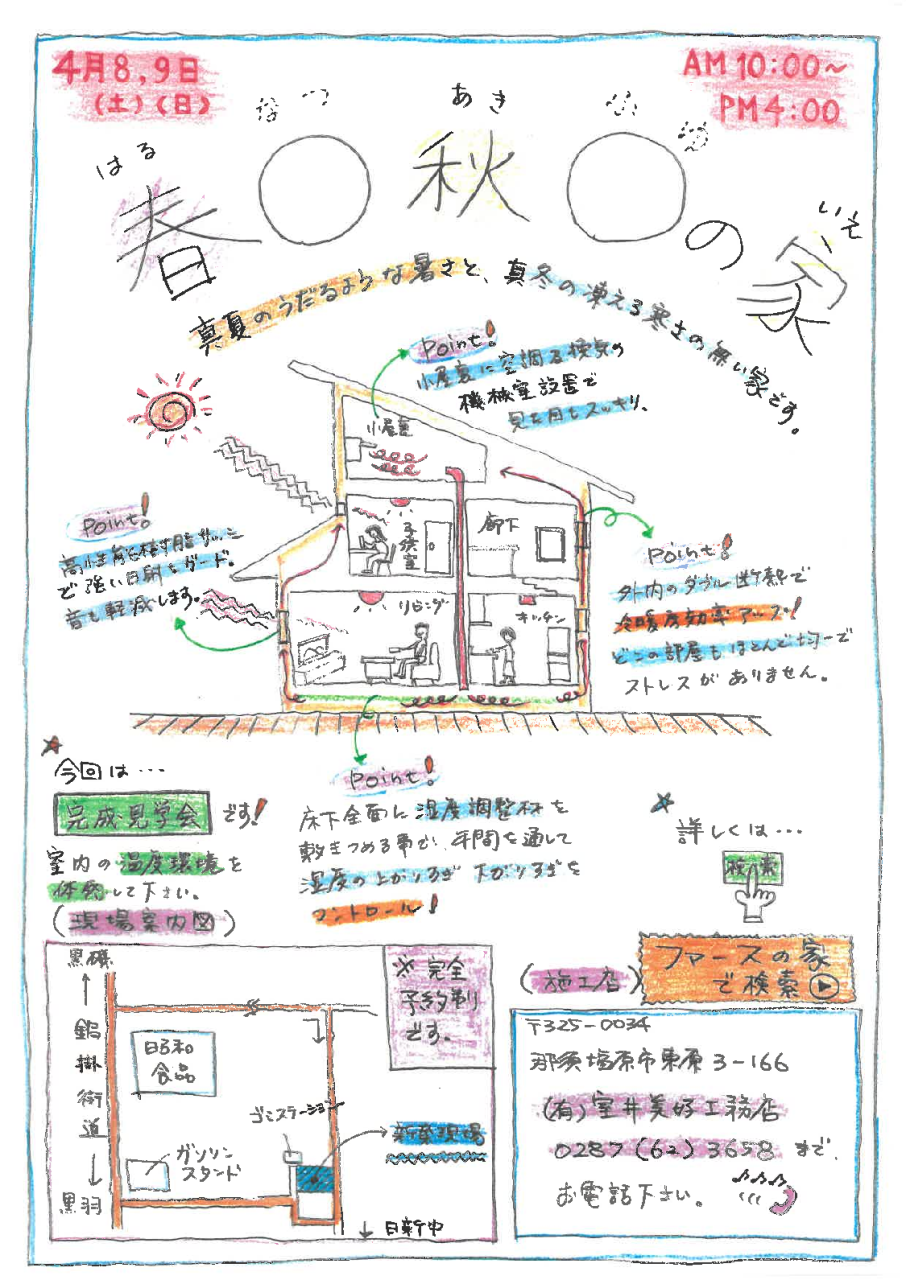 4月8,9日
(土)(日)
AM10:00～
PM4:00
はる
なつ
あき
ふゆ
いえ
春〇秋〇の家
真夏のうだるような暑さと、真冬の凍える寒さの無い家です。
Point!
小屋裏に空調&換気の
機械室設置で
見た目もスッキリ。
小屋裏
子供室
廊下
リビング
キッチン
Point!
高性能樹脂サッシ
で強い日射をガード。
音も軽減します。
Point!
外内のダブル断熱で
冷暖房効率アップ!
どこの部屋もほとんど均一で
ストレスがありません。
Point!
床下全面に湿度調整材を
敷きつめる事で、年間を通して
湿度の上がりすぎ 下がりすぎを
コントロール!
今回は…
完成見学会 です!
室内の温度環境を
体感して下さい。
(現場案内図)
詳しくは…
検索
ファースの家
で検索
黒磯
↑
鍋掛街道
↓
黒羽
昭和
食品
ゴミステーション
ガソリン
スタンド
新築現場
↓ 日新中
※完全
予約制
です。
(施工店)
〒325-0034
那須塩原市東原3-166
(有)室井美好工務店
0287(62)3658まで
お電話下さい。